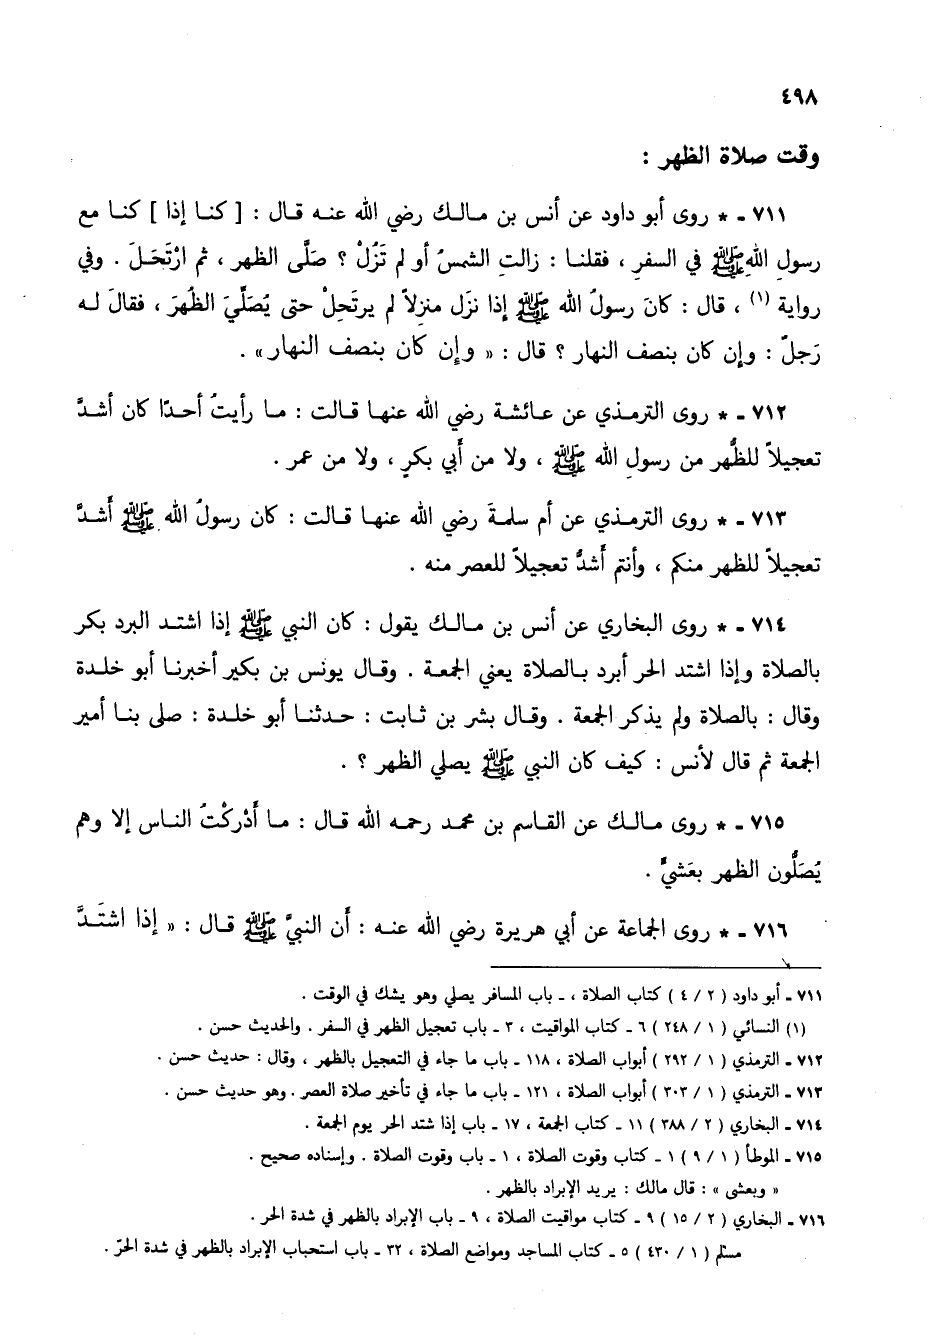 ٤٩٨
وقت صلاة الظهر :
٧١١ - * روى أبو داود عن أنس بن مالك رضي الله عنه قال : [ كنا إذا ] كنا مع
رسولِ اللهِ ﷺ في السفرِ ، فقلنا : زالتِ الشمسُ أو لم تَزُلْ ؟ صلَّى الظهر ، ثم ارْتَحَلَ . وفي
رواية (١) ، قال : كانَ رسولُ الله ﷺ إذا نزَل منزِلاً لم يرتحِلْ حتى يُصَلِّيَ الظُهرَ ، فقالَ له
رَجلٌ : وإن كان بنصف النهار ؟ قال : « وإن كان بنصف النهار» .
٧١٢ - * روى الترمذي عن عائشة رضي الله عنها قالت : ما رأيتُ أحدًا كان أشدَّ
تعجيلاً للظُّهر من رسولِ الله ﷺ ، ولا من أَبي بكرٍ ، ولا من عمر .
٧١٣ - * روى الترمذي عن أم سلمةَ رضي الله عنها قالت : كان رسولُ الله ﷺ أَشدَّ
تعجيلاً للظهر منكم ، وأنتم أَشدُّ تعجيلاً للعصر منه .
٧١٤ - * روى البخاري عن أنس بن مالك يقول : كان النبي ﷺ إذا اشتد البرد بكر
بالصلاة وإذا اشتد الحر أبرد بالصلاة يعني الجمعة . وقال يونس بن بكير أخبرنا أبو خلدة
وقال : بالصلاة ولم يذكر الجمعة . وقال بشر بن ثابت : حدثنا أبو خلدة : صلى بنا أمير
الجمعة ثم قال لأنس : كيف كان النبي ﷺ يصلي الظهر ؟ .
٧١٥ - * روى مالك عن القاسم بن محمد رحمه الله قال : ما أَدْركْتُ الناس إلا وهم
يُصَلُّون الظهر بعَشيٍّ .
٧١٦ - * روى الجماعة عن أبي هريرة رضي الله عنه : أن النبيَّ ﷺ قال : « إذا اشتَدَّ
٧١١ - أبو داود ( ٢ / ٤ ) كتاب الصلاة ، - باب المسافر يصلي وهو يشك في الوقت .
(١) النسائي ( ١ / ٢٤٨ ) ٦ - كتاب المواقيت ، ٣ - باب تعجيل الظهر في السفر . والحديث حسن .
٧١٢ - الترمذي ( ١ / ٢٩٢ ) أبواب الصلاة ، ١١٨ - باب ما جاء في التعجيل بالظهر ، وقال : حديث حسن .
٧١٣ - الترمذي ( ١ / ٣٠٣ ) أبواب الصلاة ، ١٢١ - باب ما جاء في تأخير صلاة العصر . وهو حديث حسن .
٧١٤ - البخاري ( ٢ / ٣٨٨ ) ١١ - كتاب الجمعة ، ١٧ - باب إذا شتد الحر يوم الجمعة .
٧١٥ - الموطأ ( ١ / ٩ ) ١ - كتاب وقوت الصلاة ، ١ - باب وقوت الصلاة . وإسناده صحيح .
« وبعشى » : قال مالك : يريد الإبراد بالظهر .
٧١٦ - البخاري ( ٢ / ١٥ ) ٩ - كتاب مواقيت الصلاة ، ٩ - باب الإبراد بالظهر في شدة الحر .
مسلم ( ١ / ٤٣٠ ) ٥ - كتاب المساجد ومواضع الصلاة ، ٣٢ - باب استحباب الإبراد بالظهر في شدة الحرّ .